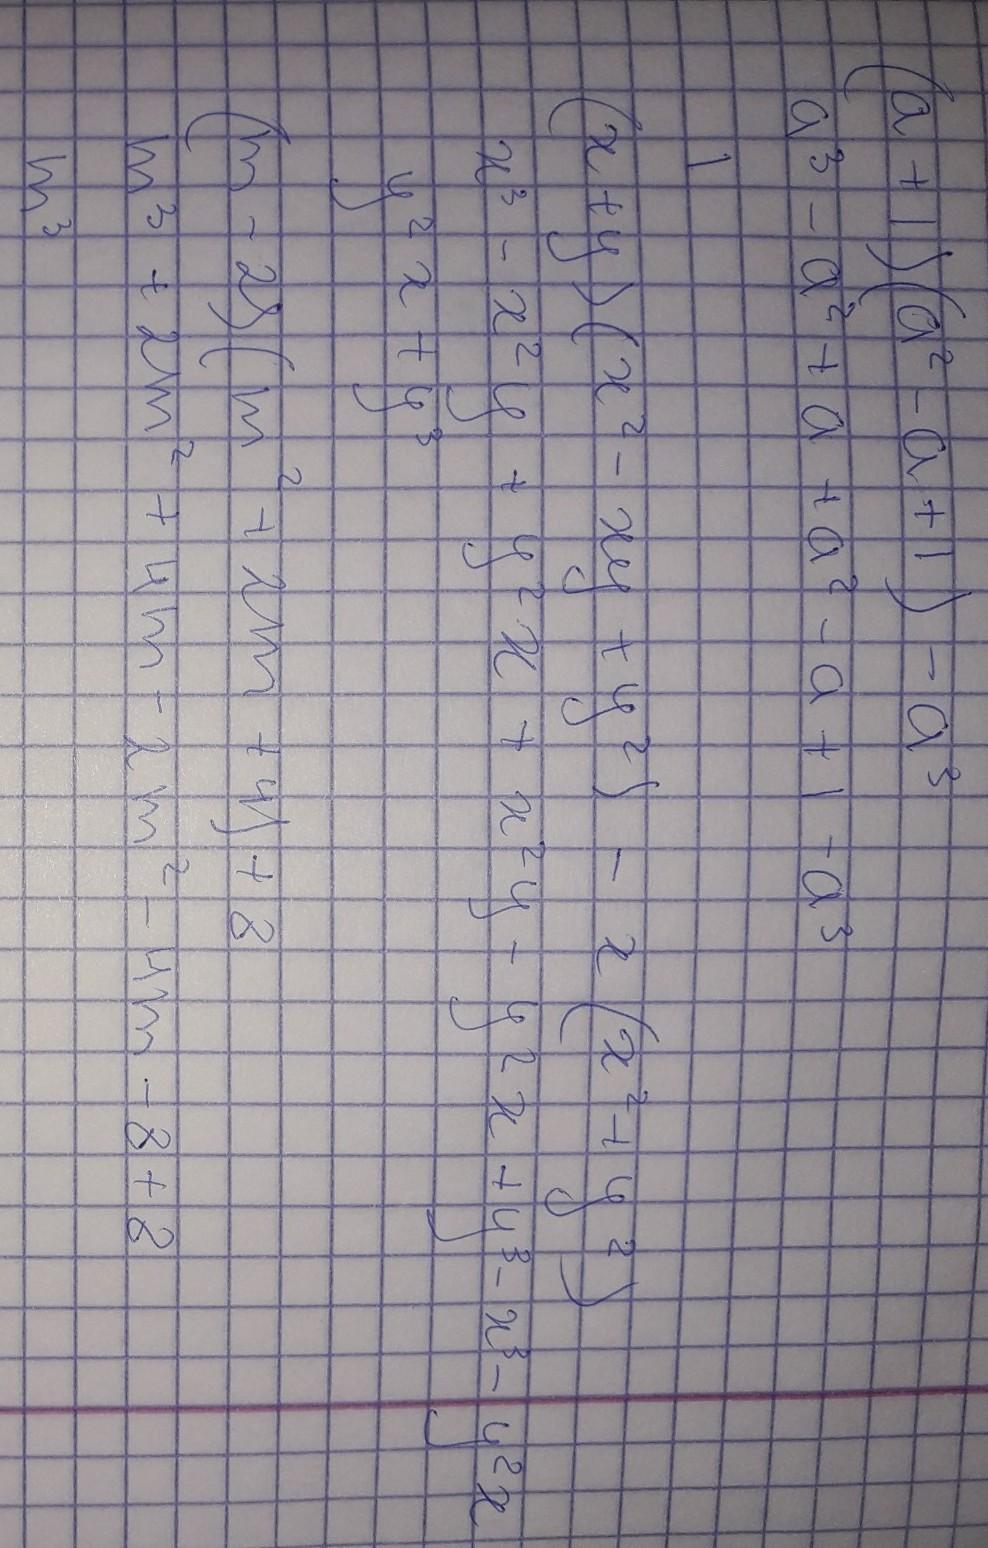 (a+1)(a²-a+1)-a³
a³-a²+a+a²-a+1-a³
1
(x+y)(x²-xy+y²)-x(x²+y²)
x³-x²y+y²x+x²y-y²x+y³-x³-y²x
y²x+y³
(m-2)(m²+2m+4)+8
m³+2m²+4m-2m²-4m-8+8
m³